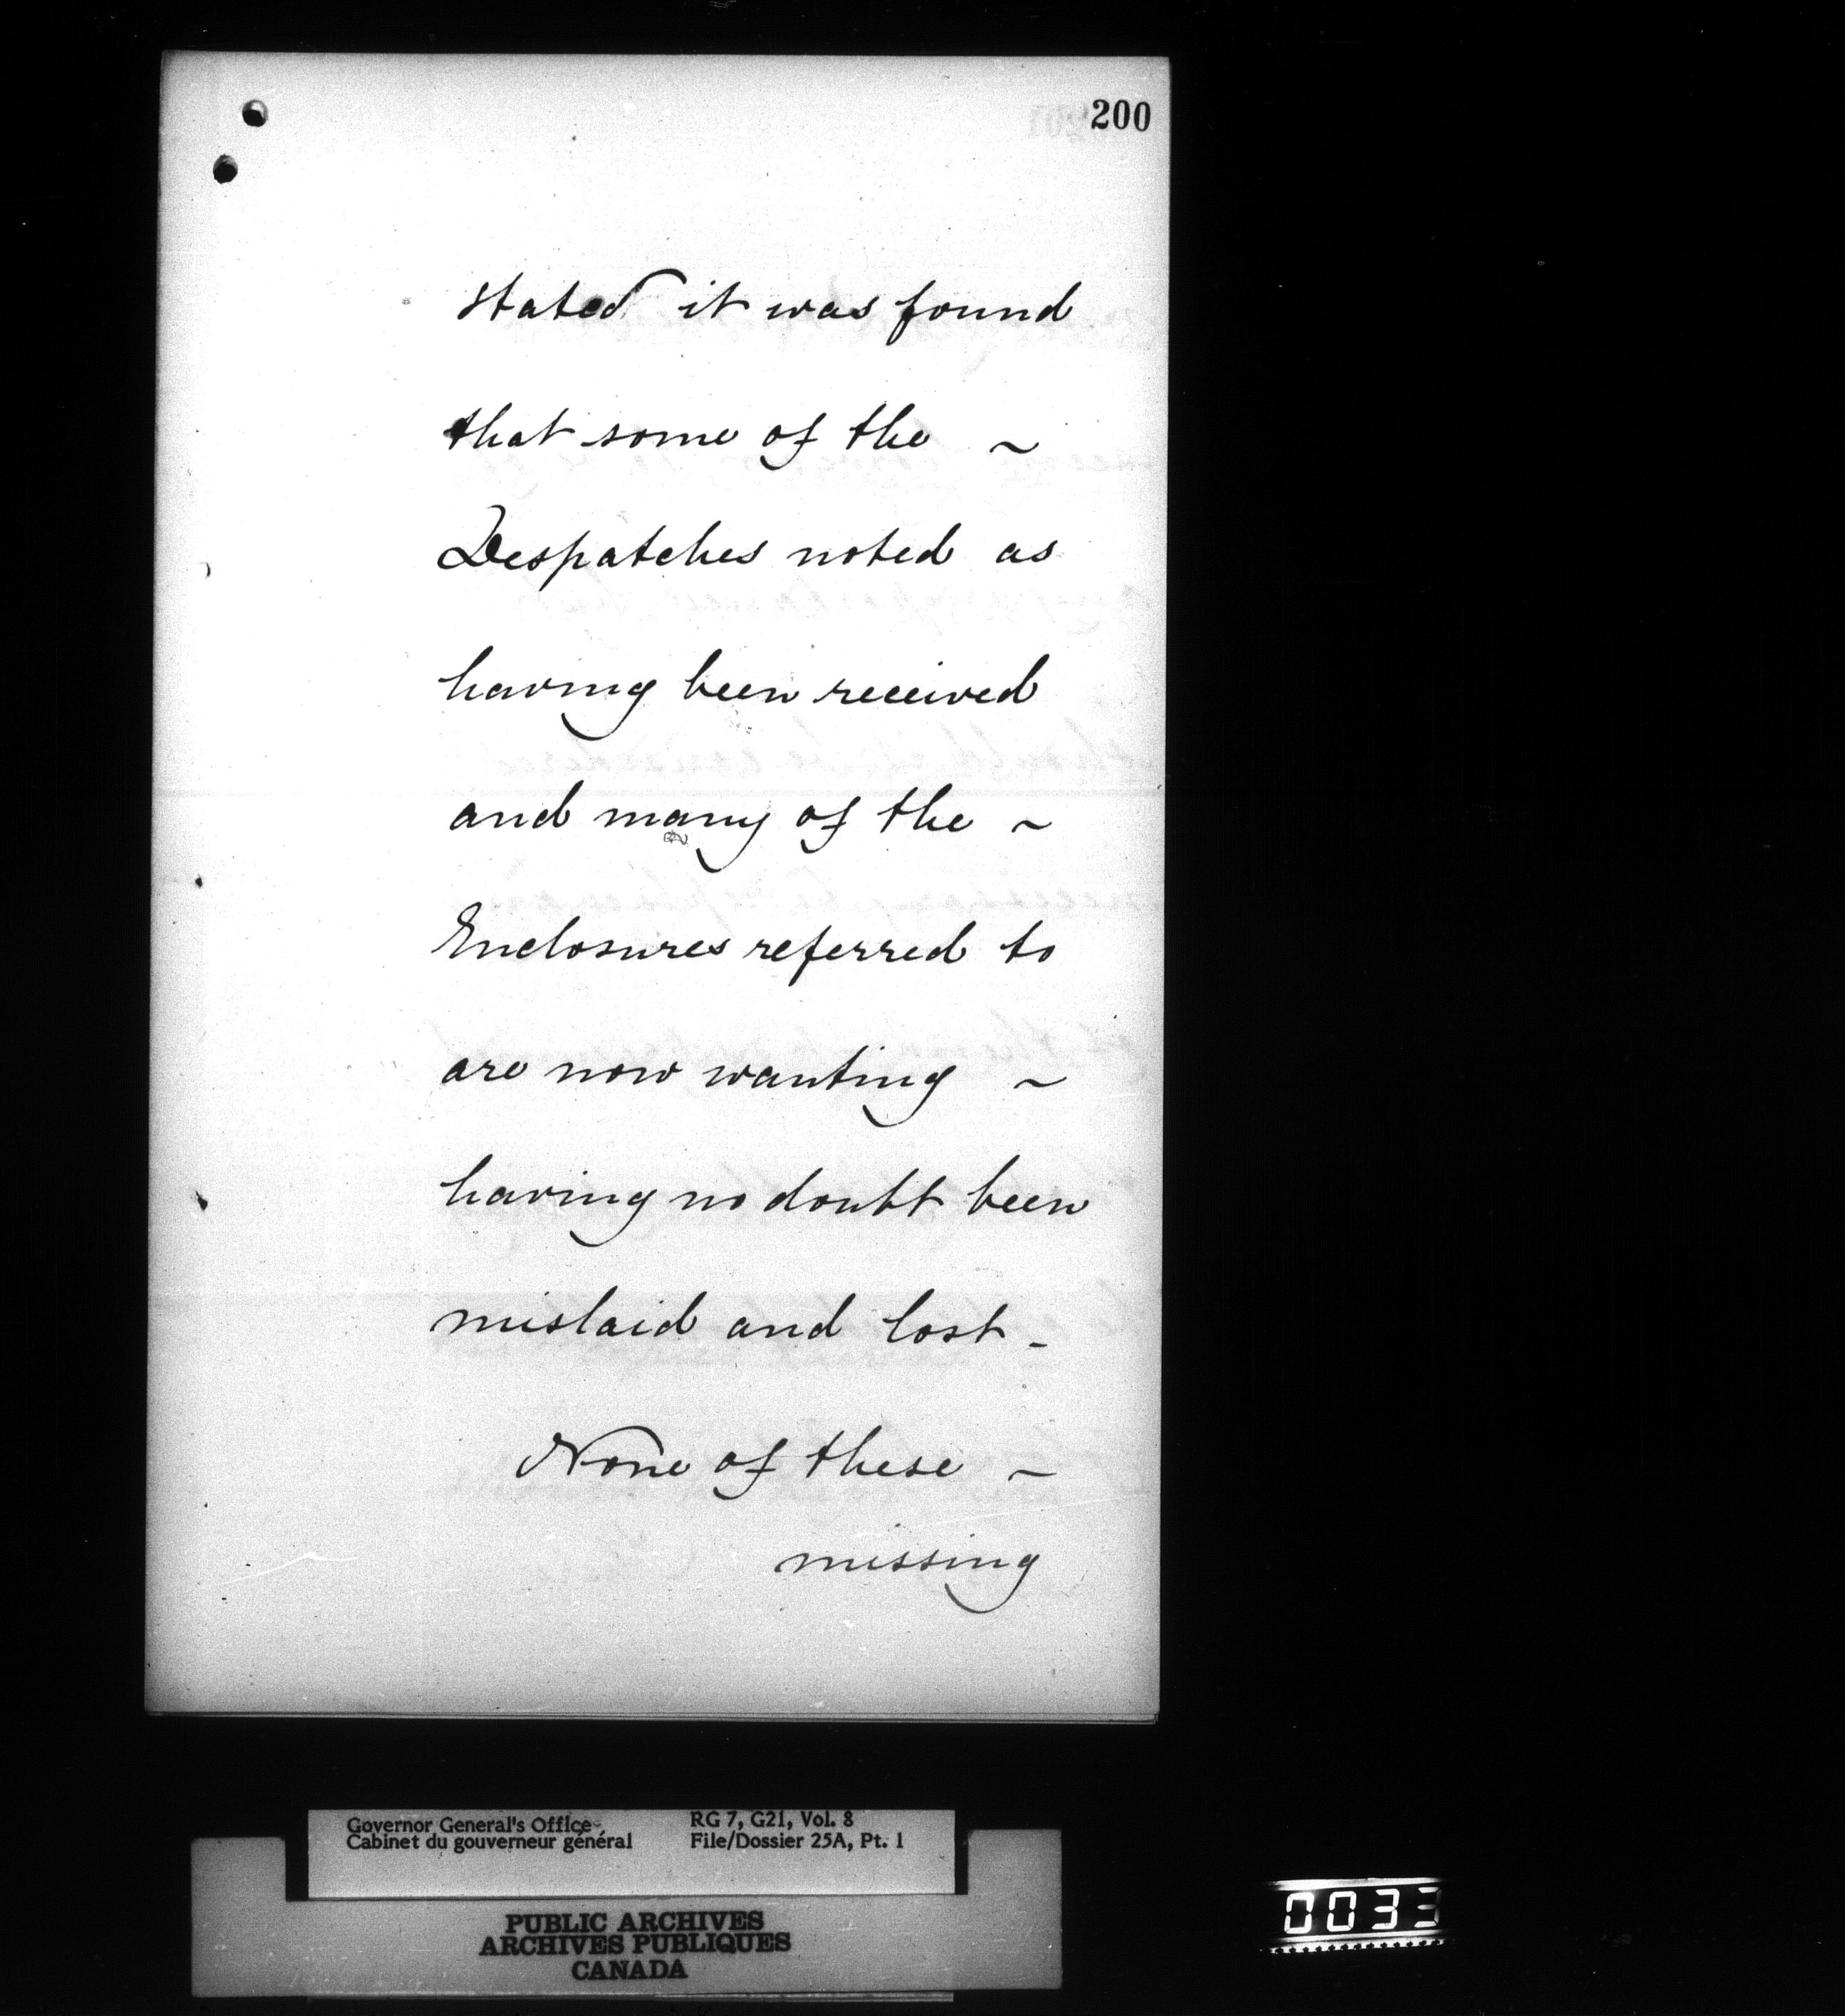 200
stated it was found
that some of the ~
Despatches noted as
having been received
and many of the ~
Enclosures referred to
are now wanting ~
having no doubt been
mislaid and lost -
None of these ~
missing
Governor General's Office RG 7, G21, Vol. 8
Cabinet du gouverneur général File/Dossier 25A, Pt. 1
PUBLIC ARCHIVES
ARCHIVES PUBLIQUES
CANADA
0033